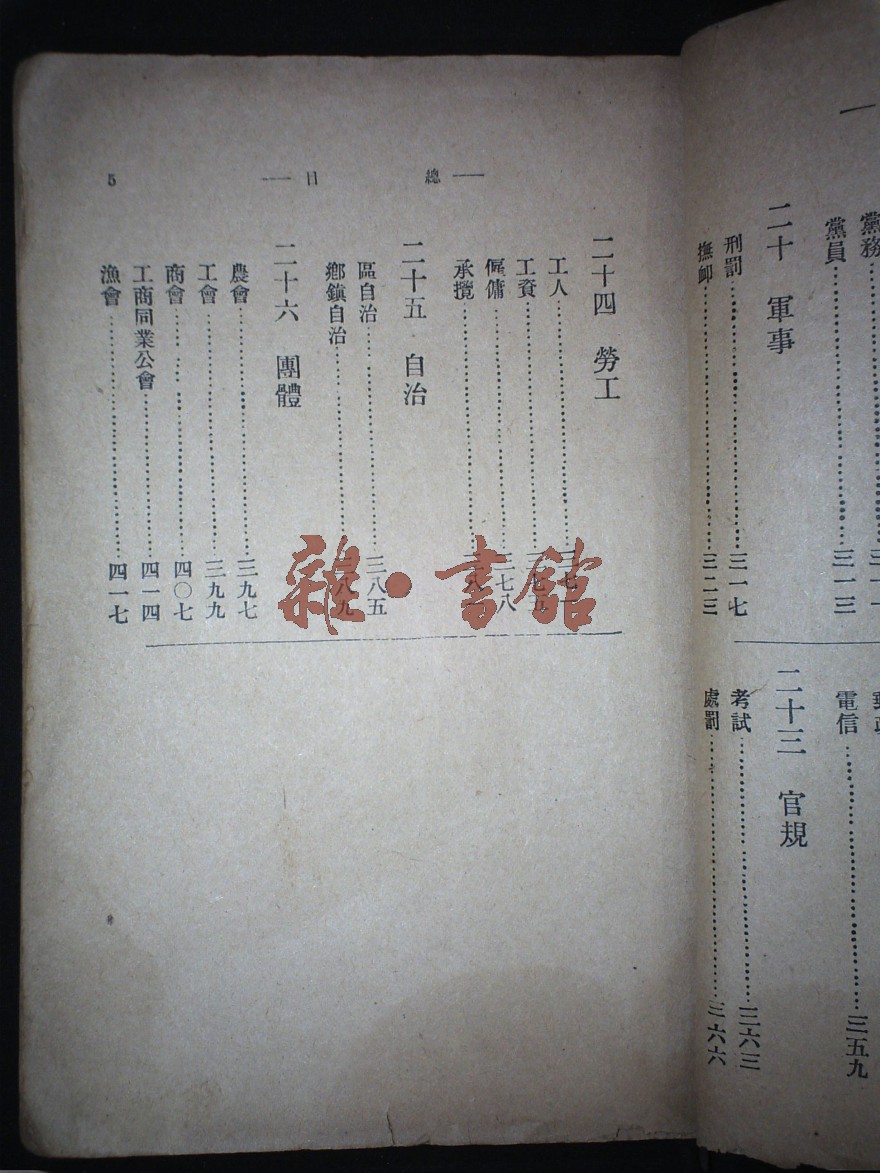 黨務
黨員……三一三
二十 軍事
刑罰……三一七
撫卹……三二三
電信……三五九
二十三 官規
考試……三六三
處罰……三六六
總 目
5
二十四 勞工
工人……
工資……三七五
僱傭……三七八
承攬……
二十五 自治
區自治……三八五
鄉鎮自治……三八九
二十六 團體
農會……三九七
工會……三九九
商會……四〇七
工商同業公會……四一四
漁會……四一七
雜·書館